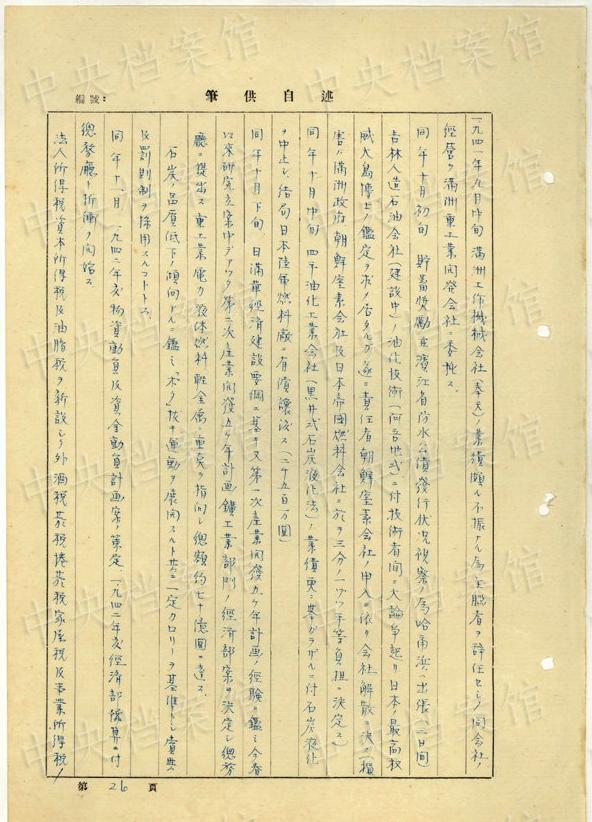 中央档案馆
述自供筆
編號：
一九四一年九月中旬 満洲工作機械会社(奉天)ノ業績頗ル不振ナル為主脳者ヲ辞任セシメ同会社ノ
経営ヲ満洲重工業開発会社ニ委托ス.
同年十月初旬 貯蓄奨勵並濱江省防水公債發行状況視察ノ為哈尔浜ヘ出張(二日間)
吉林人造石油会社(建設中)ノ油化技術(阿吾地式)ニ付技術者間ニ大論争起リ日本ノ最高权
威大島博士ノ鑑定ヲ求ノ居タルガ遂ニ責任者朝鮮窒素会社ノ申入ニ依リ会社解散ニ決ス(損
害ハ満洲政府朝鮮窒素会社及日本帝國燃料会社ニ於テ三分ノ一ヅツ平等負担ニ決定ス)
同年十月中旬 四平油化工業会社(黒井式石炭液化法)ノ業績更ニ挙ガラザルニ付石炭液化
ヲ中止シ結局日本陸軍燃料廠ニ有償譲渡ス(二千五百万圓)
同年十月下旬 日満華經济建設要綱ニ基キ又第一次産業開發五ヶ年計画ノ経験ニ鑑ミ今春
以来研究立案中デアッタ第二次産業開發五ヶ年計画鑛工業部門ノ經济部案ヲ決定シ總務
廳ニ提出ス 重工業電力液体燃料軽金属ニ重点ヲ指向シ總額約七十億圓ニ達ス.
石炭ノ品質低下ノ傾向ナルニ鑑ミ「ボタ」抜キ運動ヲ展開スルト共ニ一定カロリーヲ基準トシ賞與
及罰則制ヲ採用スルコトトス.
同年十一月 一九四二年度物資動員及資金動員計画案ノ策定 一九四二年度經济部豫算ニ付
總務廳ト折衝ヲ開始ス
法人所得税資本所得税及油脂税ヲ新設シタル外酒税菸税捲菸税家屋税及事業所得税ノ
第 26 頁